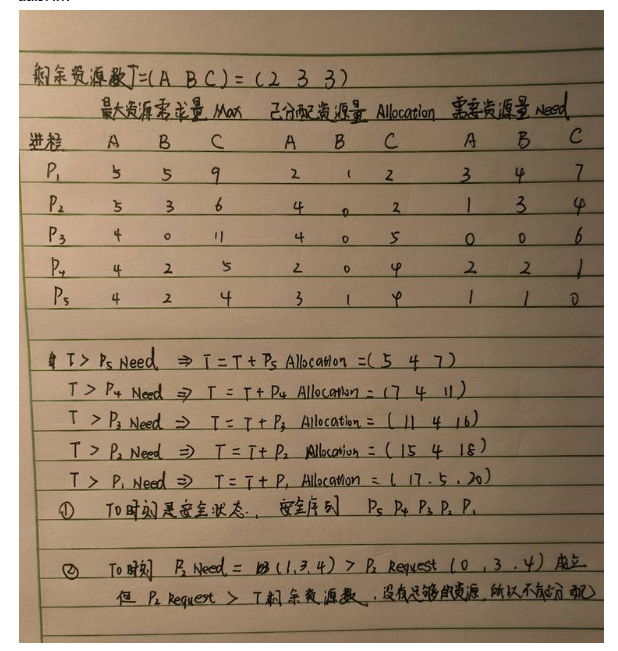 剩余资源数T=(A B C)=(2 3 3)
最大资源需求量 Max 已分配资源量 Allocation 需要资源量 Need
进程 A B C A B C A B C
P1 5 5 9 2 1 2 3 4 7
P2 5 3 6 4 0 2 1 3 4
P3 4 0 11 4 0 5 0 0 6
P4 4 2 5 2 0 4 2 2 1
P5 4 2 4 3 1 4 1 1 0
T > P5 Need ⇒ T=T+P5 Allocation=(5 4 7)
T > P4 Need ⇒ T=T+P4 Allocation=(7 4 11)
T > P3 Need ⇒ T=T+P3 Allocation=(11 4 16)
T > P2 Need ⇒ T=T+P2 Allocation=(15 4 18)
T > P1 Need ⇒ T=T+P1 Allocation=(17.5.20)
① T0时刻是安全状态. 安全序列 P5 P4 P3 P2 P1
② T0时刻 P2 Need = (1,3,4) > P2 Request (0,3.4) 成立
但 P2 Request > T剩余资源数,没有足够的资源,所以不能分配